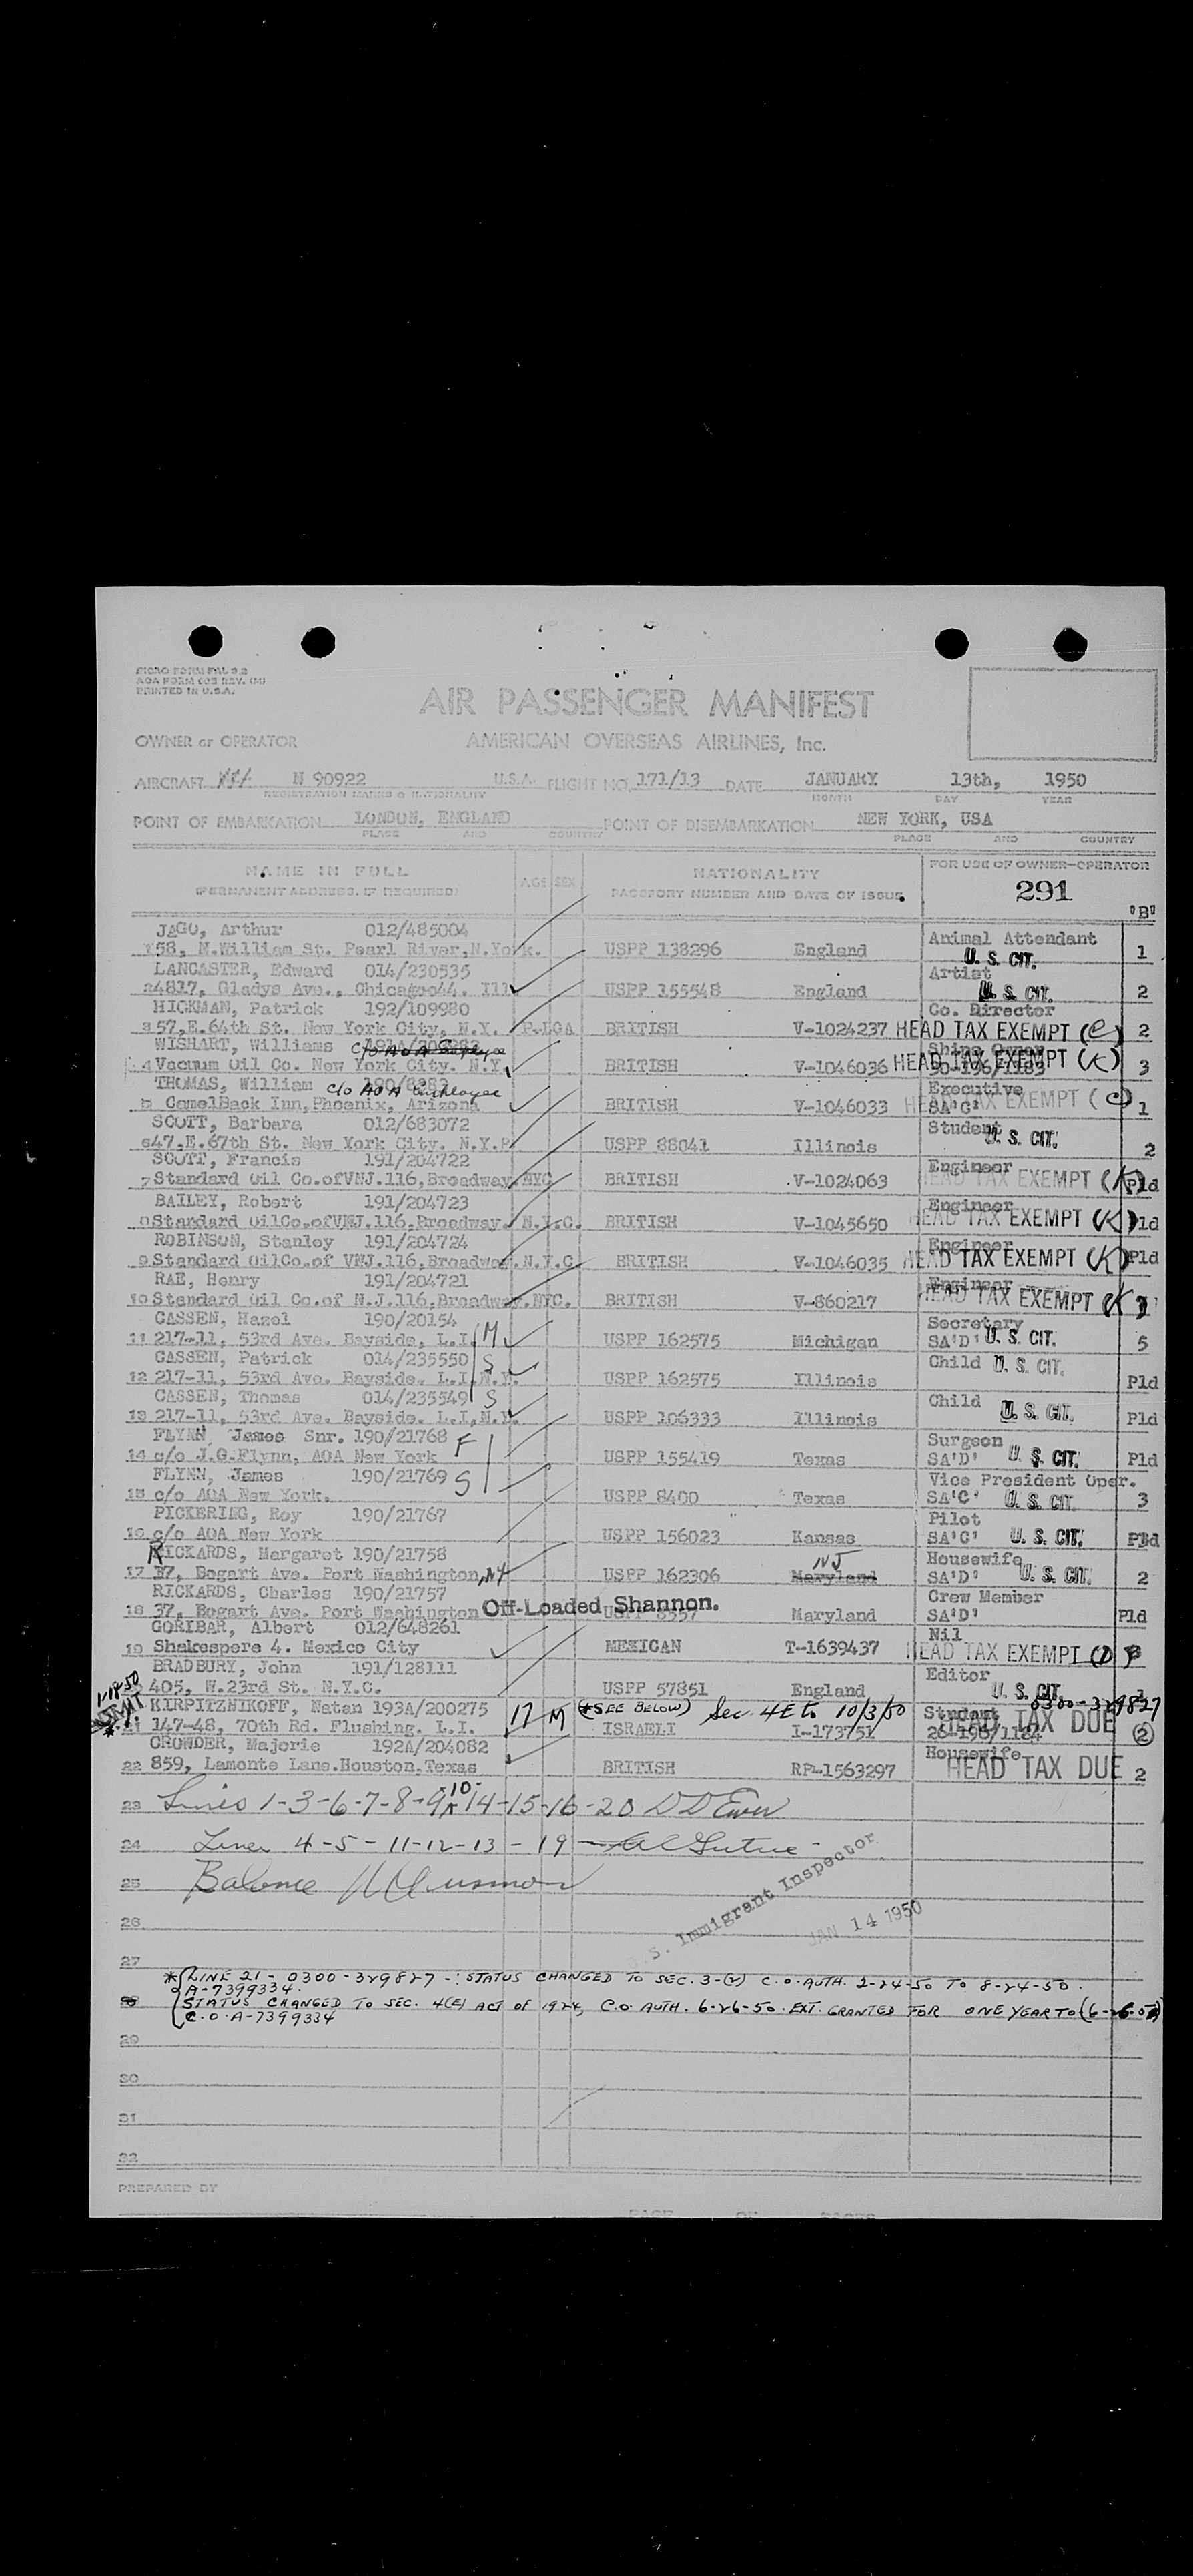 MICRO FORM PAL 3.2
AOA FORM 603 REV. (M)
PRINTED IN U.S.A.
AIR PASSENGER MANIFEST
OWNER or OPERATOR AMERICAN OVERSEAS AIRLINES, Inc.
AIRCRAFT N 90922 U.S.A. FLIGHT NO. 171/13 DATE JANUARY 13th, 1950
REGISTRATION MARKS & NATIONALITY MONTH DAY YEAR
POINT OF EMBARKATION LONDON, ENGLAND POINT OF DISEMBARKATION NEW YORK, USA
PLACE AND COUNTRY PLACE AND COUNTRY
NAME IN FULL AGE SEX NATIONALITY FOR USE OF OWNER-OPERATOR
(PERMANENT ADDRESS, IF REQUIRED) PASSPORT NUMBER AND DATE OF ISSUE 291
"B"
JAGO, Arthur 012/485004 Animal Attendant
158, N.William St. Pearl River,N.York. USPP 138296 England U. S. CIT. 1
LANCASTER, Edward 014/230535 Artist
24817, Gladys Ave., Chicagoo44. Ill USPP 155548 England U. S. CIT. 2
HICKMAN, Patrick 192/109980 Co. Director
3 57,E.64th St. New York City, N.Y. BRITISH V-1024237 HEAD TAX EXEMPT (C) 2
WISHART, Williams c/o AOA
4 Vacuum Oil Co. New York City. N.Y. BRITISH V-1046036 HEAD TAX EXEMPT (K) 3
THOMAS, William 190/8283 c/o AOA Employee Executive
5 CamelBack Inn,Phoenix, Arizona BRITISH V-1046033 SA'C' HEAD TAX EXEMPT (C) 1
SCOTT, Barbara 012/683072 Student
647,E.67th St. New York City. N.Y. USPP 88041 Illinois U. S. CIT. 2
SCOTT, Francis 191/204722 Engineer
7 Standard Oil Co.ofVNJ.116,Broadway.NYC BRITISH V-1024063 HEAD TAX EXEMPT (K) Pld
BAILEY, Robert 191/204723 Engineer
8 Standard OilCo.ofVNJ.116,Broadway. N.Y.C. BRITISH V-1045650 HEAD TAX EXEMPT (K) Pld
ROBINSON, Stanley 191/204724 Engineer
9 Standard OilCo.of VNJ.116,Broadway.N.Y.C BRITISH V-1046035 HEAD TAX EXEMPT (K) Pld
RAE, Henry 191/204721 Engineer
10 Standard Oil Co.of N.J.116,Broadway.NYC. BRITISH V-860217 HEAD TAX EXEMPT (K)
CASSEN, Hazel 190/20154 Secretary
11 217-11, 53rd Ave. Bayside, L.I. M USPP 162575 Michigan SA'D' U. S. CIT. 5
CASSEN, Patrick 014/235550 S Child U. S. CIT.
12 217-11, 53rd Ave. Bayside. L.I.N.Y. USPP 162575 Illinois Pld
CASSEN, Thomas 014/235549 S Child
13 217-11, 53rd Ave. Bayside. L.I,N.Y. USPP 106333 Illinois U. S. CIT. Pld
FLYNN James Snr. 190/21768 F Surgeon
14 c/o J.G.Flynn, AOA New York USPP 155419 Texas SA'D' U. S. CIT. Pld
FLYNN, James 190/21769 S Vice President Oper.
15 c/o AOA New York. USPP 8400 Texas SA'C' U. S. CIT. 3
PICKERING, Roy 190/21767 Pilot
16 c/o AOA New York USPP 156023 Kansas SA'C' U. S. CIT. Pld
RICKARDS, Margaret 190/21758 NJ Housewife
17 37, Bogart Ave. Port Washington, NY USPP 162306 Maryland SA'D' U. S. CIT. 2
RICKARDS, Charles 190/21757 Crew Member
18 37, Bogart Ave. Port Washington Off-Loaded Shannon. Maryland SA'D' Pld
GORIBAR, Albert 012/648261 Nil
19 Shakespere 4. Mexico City MEXICAN T-1639437 HEAD TAX EXEMPT (D)
BRADBURY, John 191/128111 Editor
405, W.23rd St. N.Y.C. USPP 57851 England U. S. CIT. 1
1-18-50 KIRPITZNIKOFF, Natan 193A/200275 17 M (*SEE BELOW) Sec. 4E to 10/3/50 Student 0300-329827
21 147-48, 70th Rd. Flushing. L.I. ISRAELI I-173751 HEAD TAX DUE 2
CROWDER, Majorie 192A/204082 Housewife
22 859, Lamonte Lane.Houston.Texas BRITISH RP-1563297 HEAD TAX DUE 2
23 Lines 1-3-6-7-8-9-10-14-15-16-20
24 Lines 4-5-11-12-13-19
25 Balance
S. Immigrant Inspector
JAN 14 1950
26
27
* LINE 21- 0300-329827-: STATUS CHANGED TO SEC. 3-(2) C.O. AUTH. 2-24-50 TO 8-24-50.
A-7399334.
28 STATUS CHANGED TO SEC. 4(E) ACT OF 1924, C.O. AUTH. 6-26-50. EXT. GRANTED FOR ONE YEAR TO
C.O. A-7399334
29
30
31
32
PREPARED BY
PAGE OF PAGES